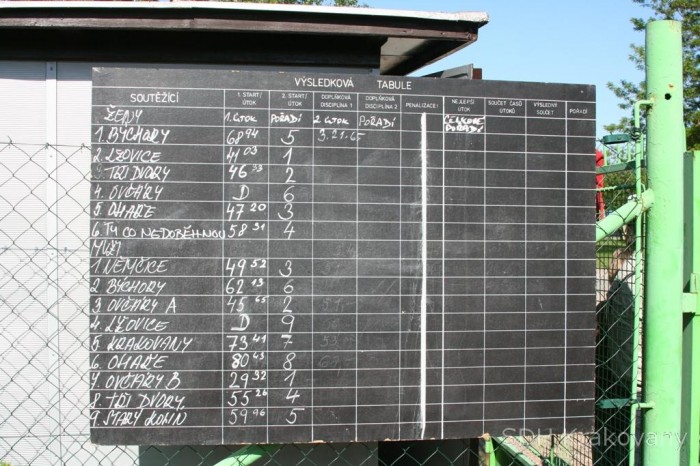 VÝSLEDKOVÁ TABULE
SOUTĚŽÍCÍ 1. START/ÚTOK 2. START/ÚTOK DOPLŇKOVÁ DISCIPLÍNA 1 DOPLŇKOVÁ DISCIPLÍNA 2 PENALIZACE NEJLEPŠÍ ÚTOK SOUČET ČASŮ ÚTOKŮ VÝSLEDNÝ SOUČET POŘADÍ
ŽENY 1. ÚTOK POŘADÍ 2 ÚTOK POŘADÍ CELKOVÉ POŘADÍ
1. BÝCHORY 60 94 5 3.21.65
2. LŽOVICE 41 03 1
3. TŘI DVORY 46 33 2
4. OVČÁRY D 6
5. OHAŘE 47 20 3
6. TY CO NEDOBĚHNOU 58 31 4
MUŽI
1. NĚMČICE 49 52 3
2 BÝCHORY 62 13 6
3. OVČÁRY A 45 65 2
4. LŽOVICE D 9
5. KRAKOVANY 73 41 7
6. OHAŘE 80 43 8
7. OVČÁRY B 29 32 1
8. TŘI DVORY 55 26 4
9. STARÝ KOLÍN 59 96 5
SDH Krakovany